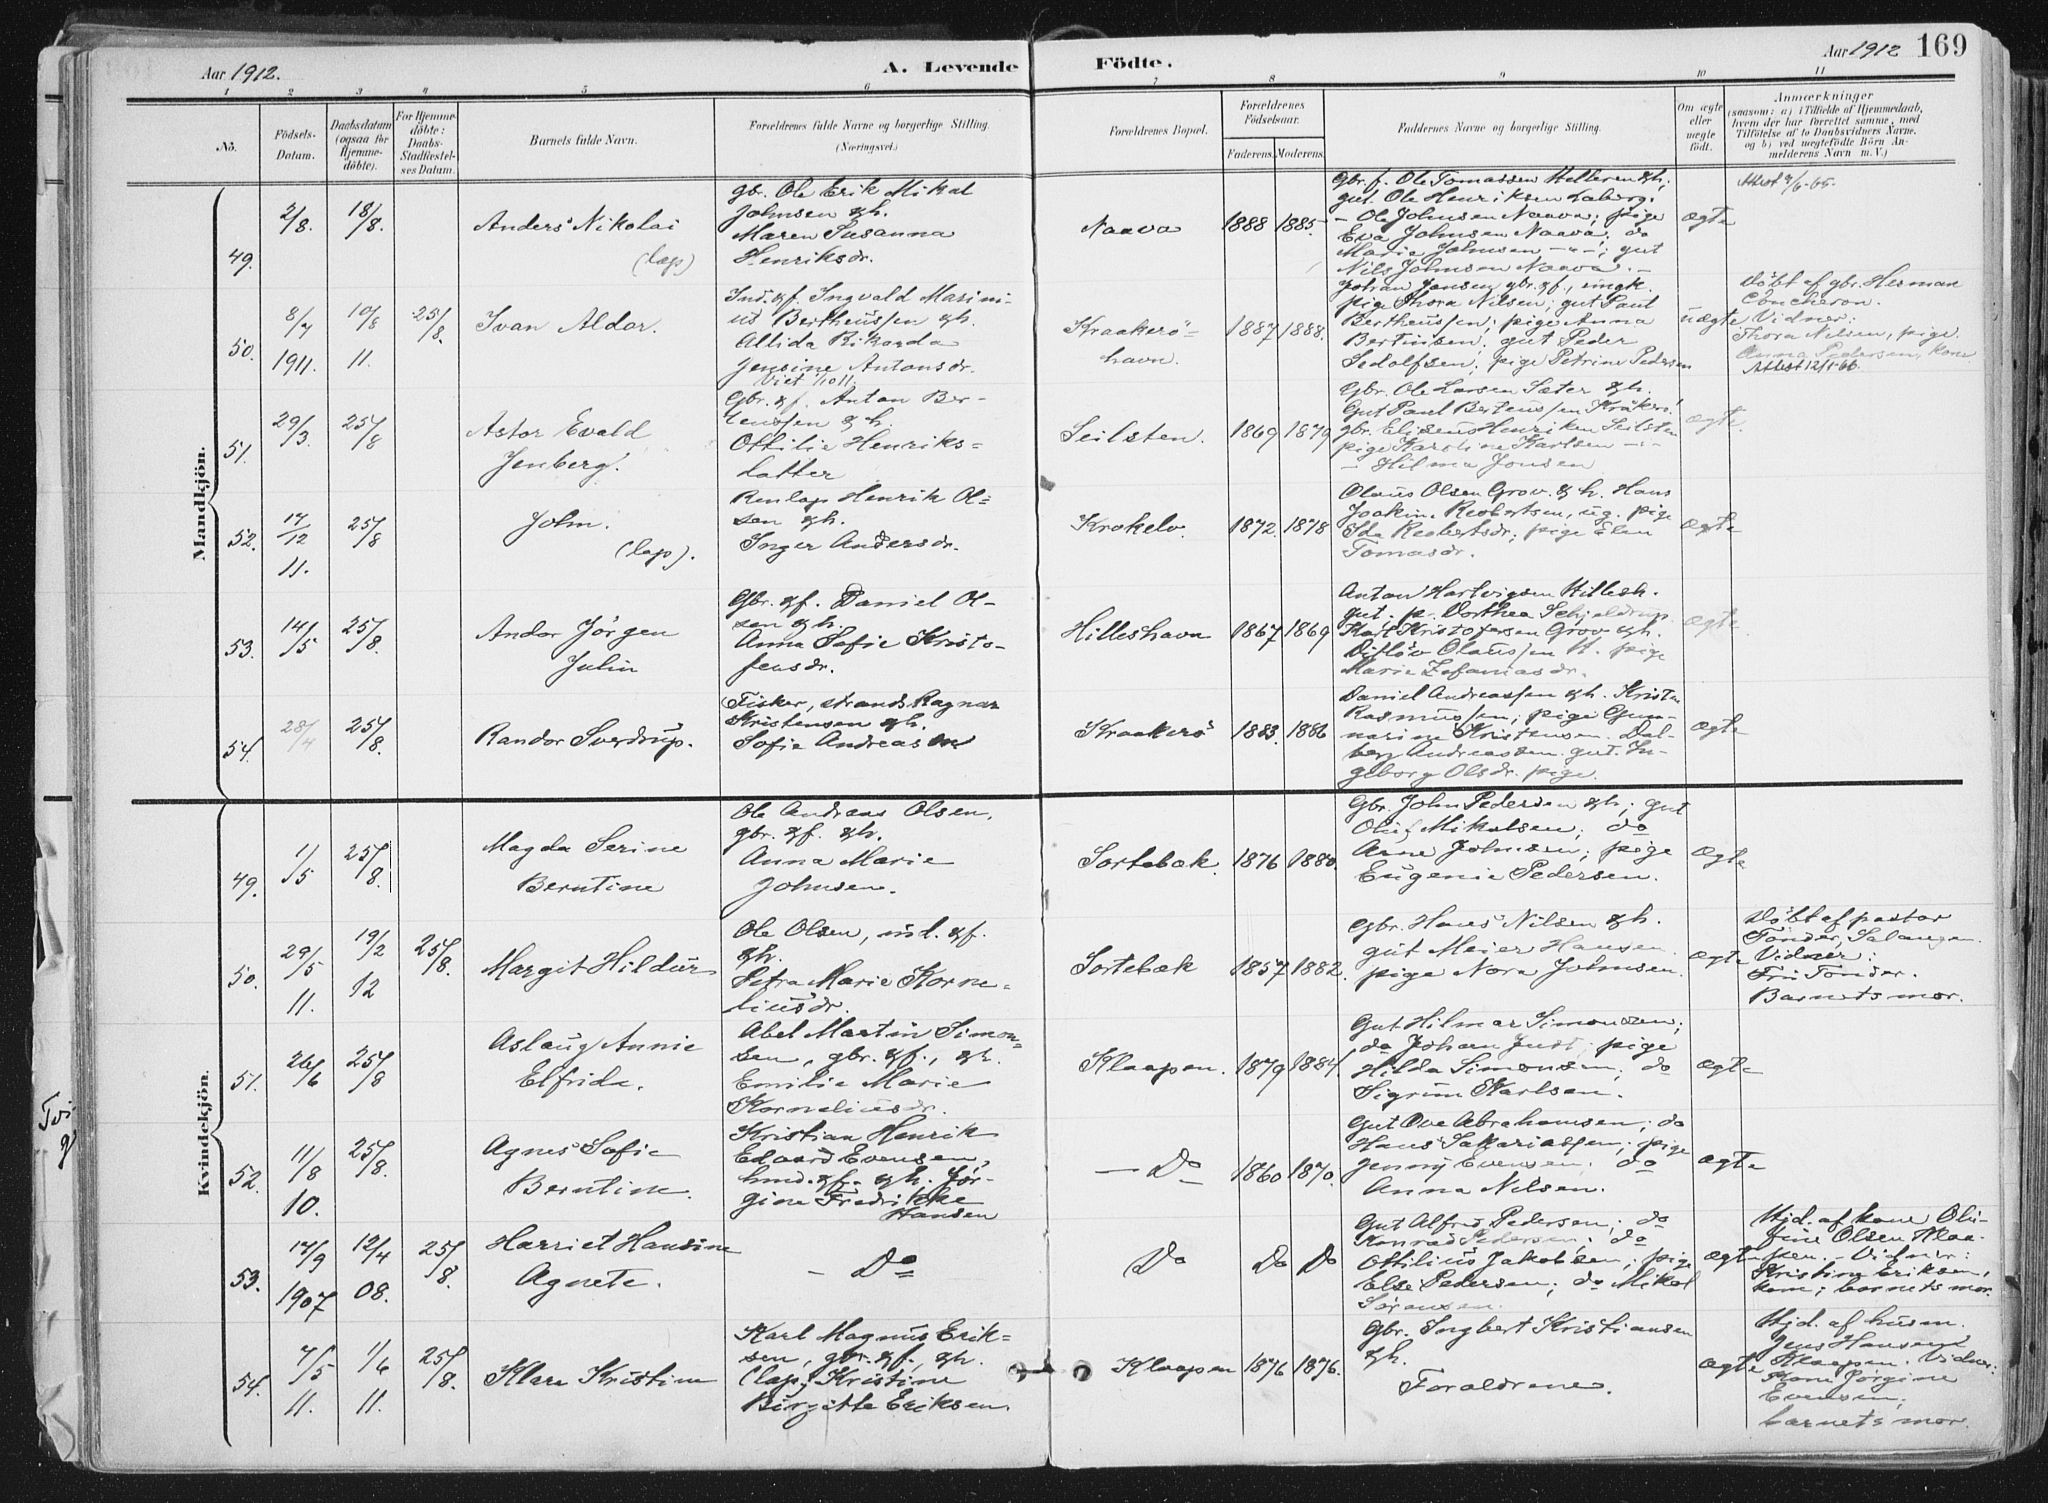 Aar 1912.
A. Levende
Födte.
Aar 1912
169
1 2 3 4 5 6 7 8 9 10 11
No.
Födsels-
Datum.
Daabsdatum
(ogsaa for
Hjemme-
döbte).
For Hjemme-
döbte:
Daabs-
Stadfæstel-
ses Datum.
Barnets fulde Navn.
Forældrenes fulde Navne og borgerlige Stilling.
(Næringsvei.)
Forældrenes Bopæl.
Forældrenes
Födselsaar.
Faderens. Moderens.
Faddernes Navne og borgerlige Stilling.
Om ægte
eller
uægte
født.
Anmærkninger
(saasom: a) i Tilfælde af Hjemmedaab,
hvem der har forrettet samme, med
Tilföielse af to Daabsvidners Navne,
og b) ved uægtefödte Börn An-
melderens Navn m. V.)
Mandkjön.
49.
2/8.
18/8.
Anders Nikolai
(lap)
gbr. Ole Erik Mikal
Johnsen & h.
Maren Susanna
Henriksdr.
Naava
1888 1885.
Gbr. f. Ole Tomassen Helleren & h;
gut. Ole Henriksen Laberg;
- Ole Johnsen Naava; pige
Eva Johnsen Naava; do
Marie Johnsen -"-; gut
Nils Johnsen Naava. -
ægte
Attest 9/6-65.
50.
8/7
1911.
10/8
11.
25/8
Ivan Aldor.
Ind. & f. Ingvald Marini-
us Bertheussen & h.
Allida Rikarda
Jensine Antonsdr.
Viet 1/10 11.
Kraakerö-
havn.
1887 1888.
Johan Jensen gbr. & f., ungk.
pige Thora Nilsen; gut Paul
Bertheussen; pige Anna
Bertinsen; gut Peder
Sedolfsen; pige Petrine Pedersen
uægte
Döbt af gbr. Herman
Concheron.
Vidner:
Thora Nilsen, pige.
Anna Pedersen, kone
Attest 12/1-66.
51.
29/3.
25/8
Astor Evald
Jenberg.
Gbr. & f. Anton Ber-
teussen & h.
Ottilie Henriks-
datter
Seilsten.
1869 1879
Gbr. Ole Larsen Sæter & h.
Gut Paul Berteussen Kråkerö
gbr. Eliseus Henriksen Seilsten
pige Karoline Karlsen -"-
- Hilma Jensen
ægte
52.
17/12
11.
25/8
John.
(lap).
Renlap Henrik Ol-
sen & h.
Inger Andersdr.
Krokelv.
1872. 1878
Olaus Olsen Grov. & h. Hans
Joakim Reobertsen, ug. pige
Ida Reobertsdr; pige Elen
Tomasdr.
ægte
53.
14/5
25/8.
Andor Jørgen
Julin
Gbr. & f. Daniel Ol-
sen & h.
Anna Sofie Kristo-
fensdr.
Hilleshavn
1867 1869
Anton Hartvigsen Hillesh.
gut. p. Dorthea Schjeldrup
Karl Kristofersen Grov & h.
Ditløv Olaussen H. pige
Marie Zefaniasdr.
ægte
54.
28/4
25/8.
Randor Sverdrup.
Fisker, strands. Ragnar
Kristensen & h.
Sofie Andreasen
Kraakerö
1883. 1886
Daniel Andreassen & h. Kristen
Rasmussen; pige Gun-
narine Kristensen. Dal-
berg Andreassen gut. In-
geborg Olsdr. pige.
ægte
Kvindekjön.
49.
1/5
25/8.
Magda Serine
Berntine
Ole Andreas Olsen,
gbr. & f. & h.
Anna Marie
Johnsen.
Sortebæk.
1876 1880.
Gbr. John Pedersen & h; gut
Oluf Mikalsen; do
Arne Johnsen; pige
Eugenie Pedersen.
ægte
50.
29/5
11.
19/2
12
25/8.
Margit Hildur
Ole Olsen, ind. & f.
& h.
Petra Marie Korne-
liusdr.
Sortebæk
1857 1882.
Gbr. Hans Nilsen & h.
gut Meier Hansen
pige Nora Johnsen.
ægte
Döbt af pastor
Tönder, Salangen.
Vidner:
Fru Tönder.
Barnets mor.
51.
26/6
25/8
Aslaug Annie
Elfrida.
Abel Martin Simon-
sen, gbr. & f., & h.
Emilie Marie
Korneliusdr.
Klaapen.
1879 1884.
Gut Hilmar Simonsen;
do Johan Just; pige
Hilda Simonsen; do
Sigrun Karlsen.
ægte
52.
11/8
10.
25/8.
Agnes Sofie
Berntine.
Kristian Henrik
Edvard Evensen,
hmd. & f. & h. Jør-
gine Fredrikke
Hansen
- Do -
1860 1870.
Gut Ove Abrahamsen; do
Hans Sakariassen; pige
Jenny Evensen. do
Anna Nilsen.
ægte
53.
17/9
1907
12/4
08.
25/8.
Harriet Hansine
Agnete.
- Do
Do
Do Do
Gut Alfred Pedersen; do
Konrad Pedersen; do
Ottilius Jakobsen; pige
Else Pedersen; do Mikal
Sørensen.
ægte
Hjd. af kone Olu-
fine Olsen Klaa-
pen. - Vidner:
Kristine Eriksen,
kone; barnets mor.
54.
7/5
11.
1/6
11.
25/8.
Klara Kristine
Karl Magnus Erik-
sen, gbr. & f., & h.
(lap) Kristine
Birgitte Eriksen.
Klaapen
1876 1876.
Gbr. Ingbert Kristiansen
& h.
Forældrene.
ægte
Hjd. af husm.
Jens Hansen
Klaapen. Vidner:
Kone Jørgine
Evensen,
barnets mor.